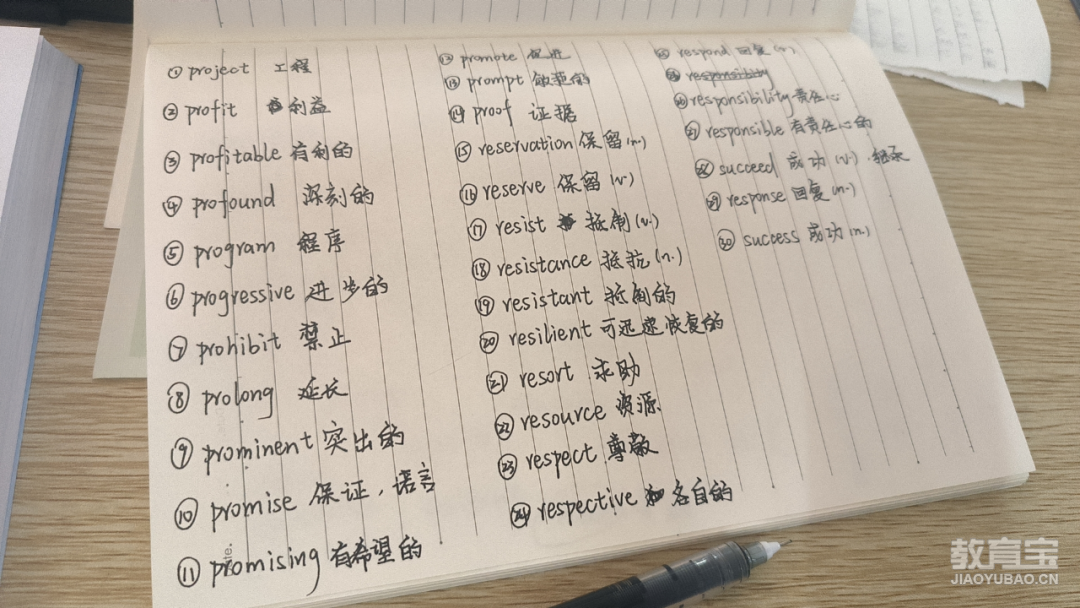 ① project 工程
② profit 利益
③ profitable 有利的
④ profound 深刻的
⑤ program 程序
⑥ progressive 进步的
⑦ prohibit 禁止
⑧ prolong 延长
⑨ prominent 突出的
⑩ promise 保证，诺言
⑪ promising 有希望的
⑫ promote 促进
⑬ prompt 敏捷的
⑭ proof 证据
⑮ reservation 保留(n.)
⑯ reserve 保留(v.)
⑰ resist 抵制(v.)
⑱ resistance 抵抗(n.)
⑲ resistant 抵制的
⑳ resilient 可迅速恢复的
㉑ resort 求助
㉒ resource 资源
㉓ respect 尊敬
㉔ respective 各自的
㉕ respond 回复(v.)
responsiblity
㉖ responsibility 责任心
㉗ responsible 有责任心的
㉘ succeed 成功(v.)，继承
㉙ response 回复(n.)
㉚ success 成功(n.)
教育宝
JIAOYUBAO.CN